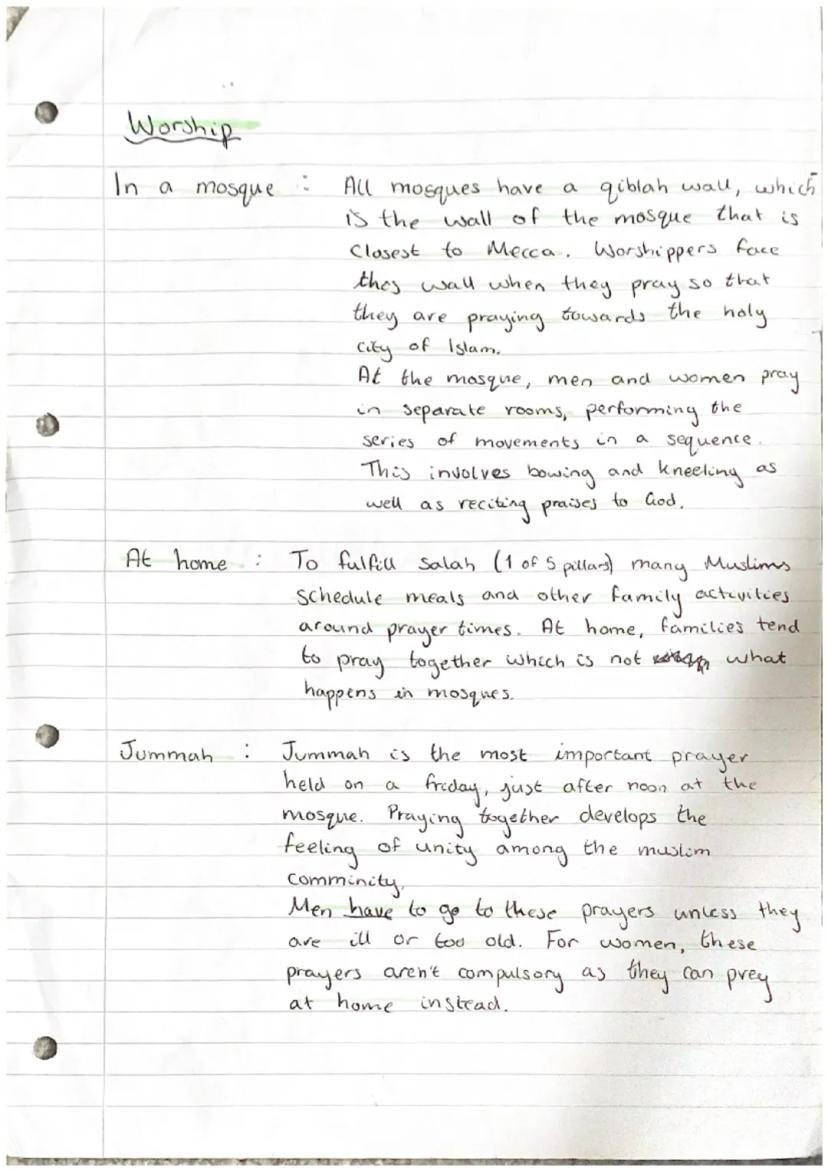 Worship
In a mosque : All mosques have a qiblah wall, which
is the wall of the mosque that is
closest to Mecca. Worshippers face
this wall when they pray so that
they are praying towards the holy
city of Islam.
At the mosque, men and women pray
in separate rooms, performing the
series of movements in a sequence.
This involves bowing and kneeling as
well as reciting praises to God.
At home : To fulfill salah (1 of 5 pillars) many Muslims
schedule meals and other family activities
around prayer times. At home, families tend
to pray together which is not what
happens in mosques.
Jummah : Jummah is the most important prayer
held on a friday, just after noon at the
mosque. Praying together develops the
feeling of unity among the muslim
comminity.
Men have to go to these prayers unless they
are ill or too old. For women, these
prayers aren't compulsory as they can prey
at home instead.